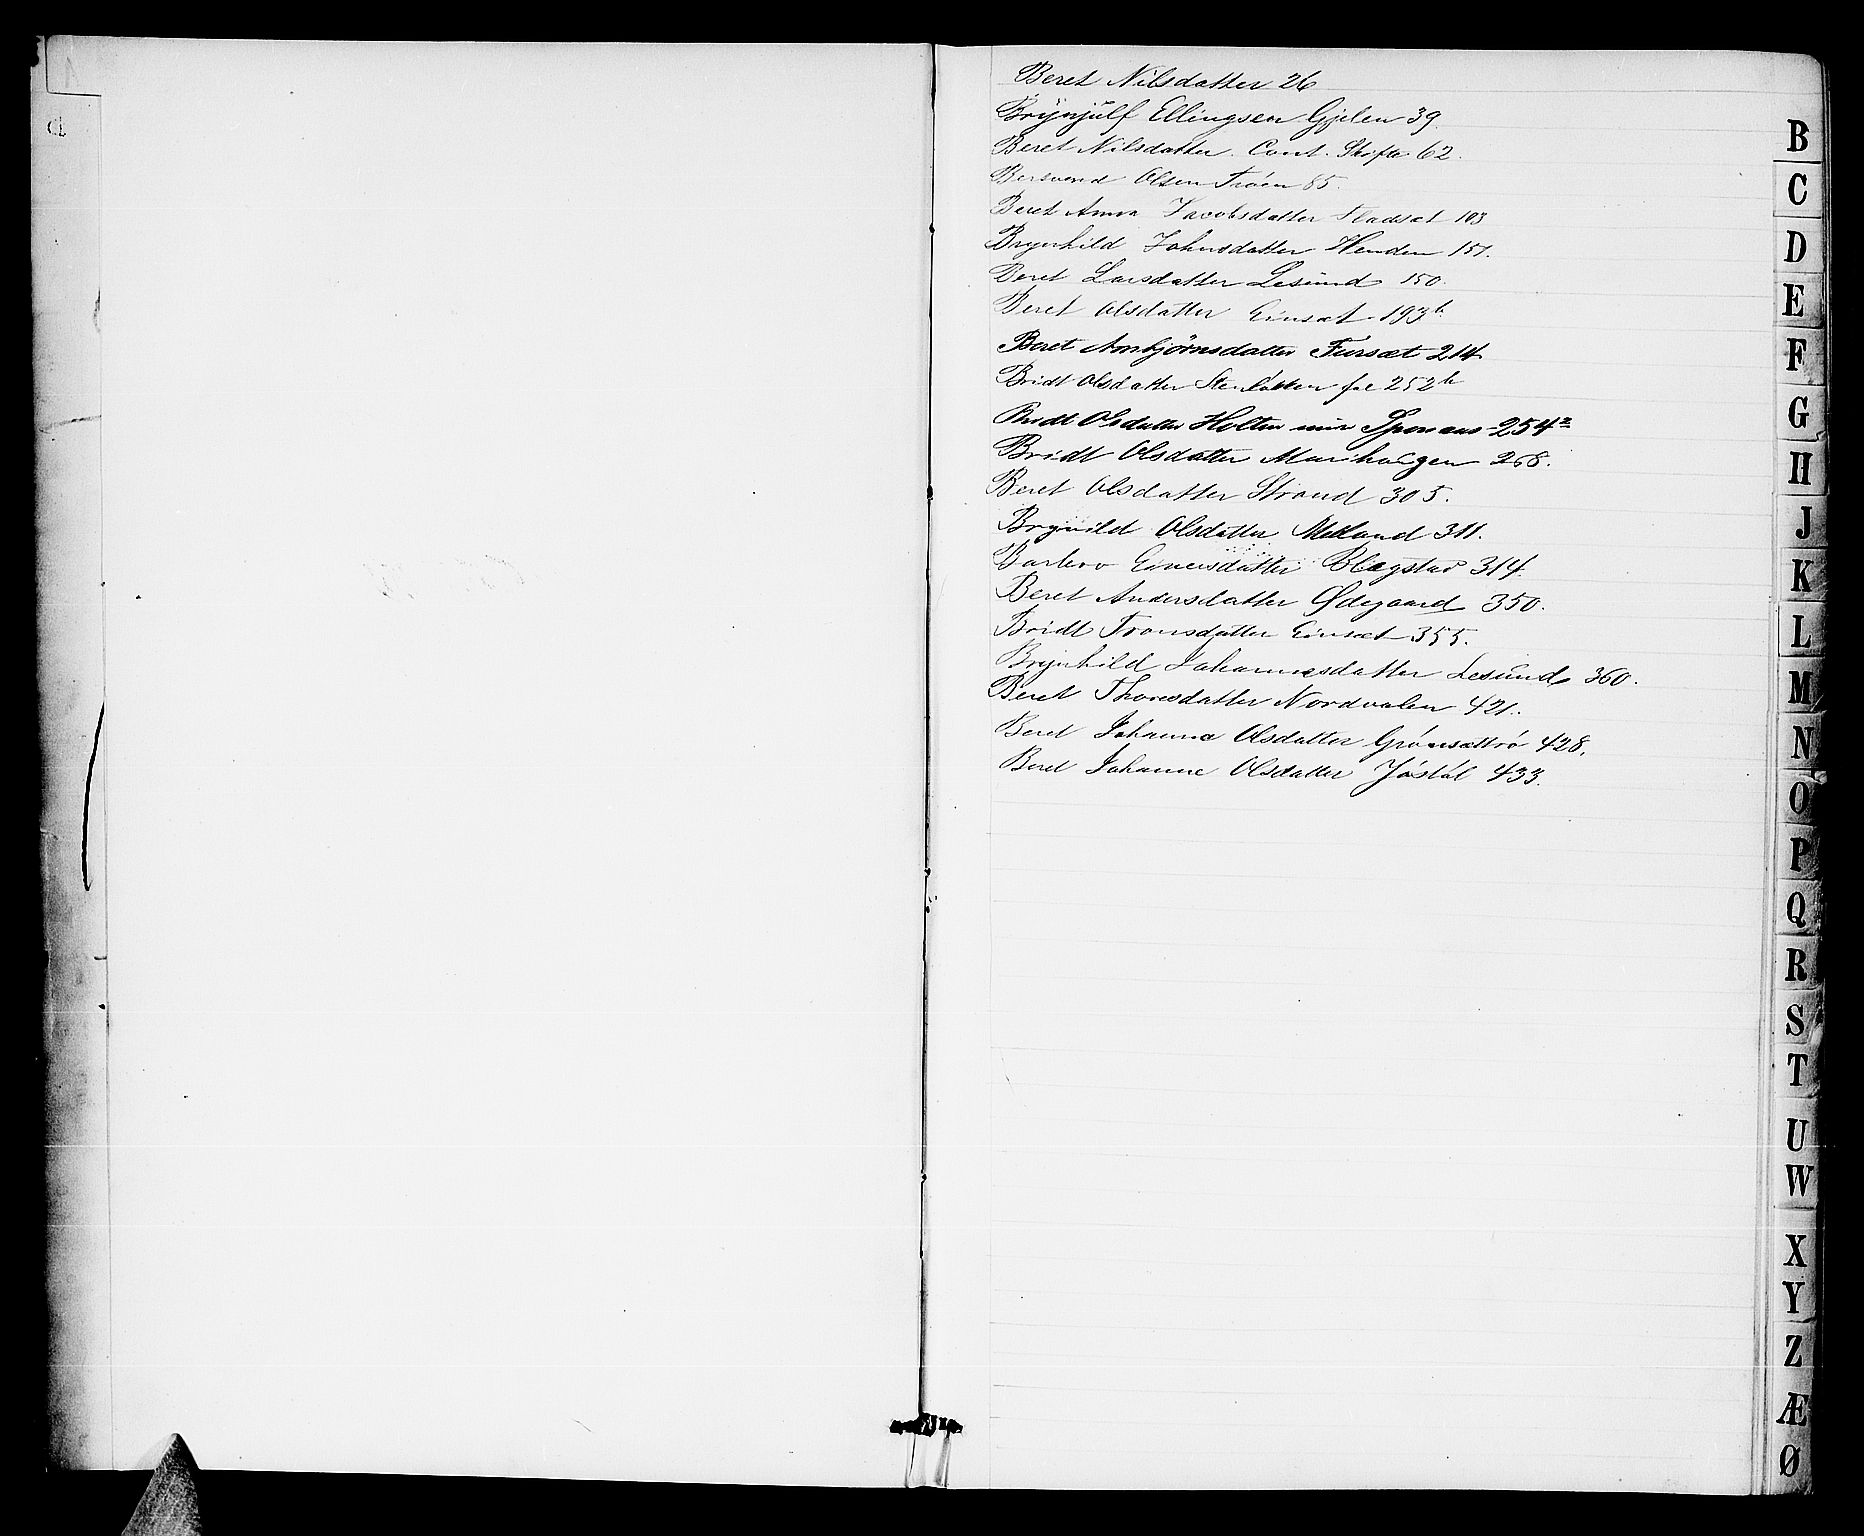 Beret Nilsdatter 26
Brynjulf Ellingsen Gjelen 39.
Beret Nilsdatter. Cont. Skifte 62.
Bersvend Olsen Trøen 85.
Beret Anna Jacobsdatter Fladset 103
Brynhild Johnsdatter Henden 151.
Beret Larsdatter Lesund 150.
Beret Olsdatter Einset 193b
Beret Arnbjörnsdatter Fursæt 214
Bridt Olsdatter fol 252b
Bridt Olsdatter Holten 254a
Bridt Olsdatter Marihaugen 268.
Beret Olsdatter Strand 305.
Brynild Olsdatter Melland 311.
Barbro Einersdatter Blegstad 314.
Beret Andersdatter Ødegaard 350.
Bridt Tronsdatter Einset 355.
Brynhild Johannesdatter Lesund 360.
Beret Thoresdatter Nordvalen 421.
Beret Johanna Olsdatter Grönsættrö 428.
Beret Johanne Olsdatter Jöstöl 433.
B
C
D
E
F
G
H
J
K
L
M
N
O
P
Q
R
S
T
U
W
X
Y
Z
Æ
Ø